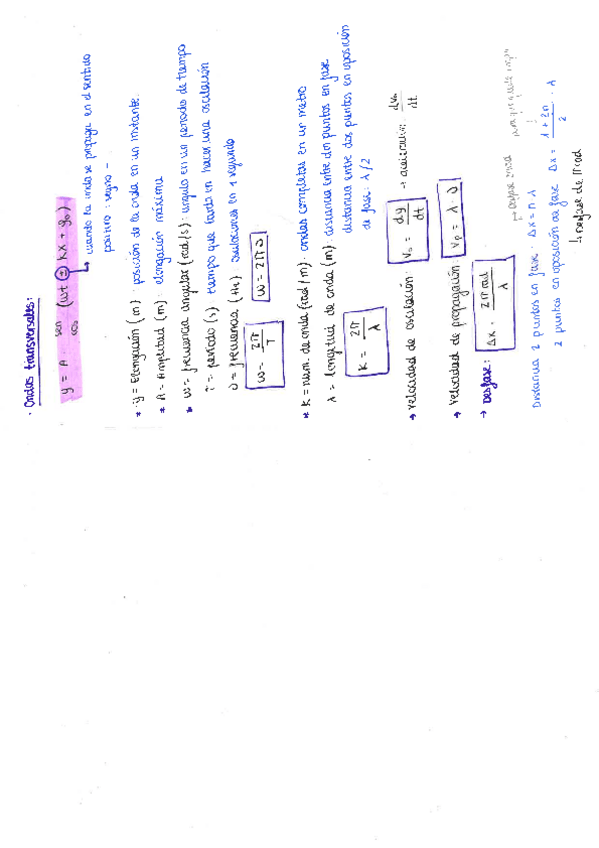 · Ondas transversales:
y = A · sen/cos (ωt ± kx + φ₀)
↳ cuando la onda se propaga en el sentido
positivo: signo -
* y = Elongación (m): posición de la onda en un instante.
* A = Amplitud (m): elongación máxima
* ω = frecuencia angular (rad/s): angulo en un periodo de tiempo
T = periodo (s) tiempo que tarda en hacer una oscilación
ν = frecuencia (Hz) oscilaciones en 1 segundo
ω = 2π/T ω = 2πν
* K = num. de onda (rad/m): ondas completas en un metro
λ = longitud de onda (m) distancia entre dos puntos en fase
distancia entre dos puntos en oposición
de fase: λ/2
K = 2π/λ
→ velocidad de oscilación: v₀ = dy/dt → aceleración: dv₀/dt
→ velocidad de propagación: vp = λ · ν
→ Desfase: Δx · 2π rad/λ
Distancia 2 puntos en fase: Δx = n λ
2 puntos en oposición de fase Δx = 1+2n/2 · λ
↳ desfase de π rad